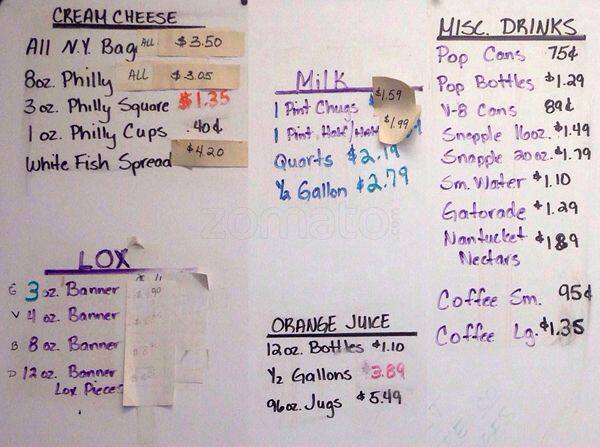 CREAM CHEESE
All N.Y. Bag ALL $3.50
8oz. Philly ALL $3.05
3oz. Philly Square $1.35
1oz. Philly Cups .40¢
White Fish Spread $4.20
LOX
3 oz. Banner
V 4 oz. Banner
B 8 oz. Banner
D 12 oz. Banner
Lox Pieces
Milk
1 Pint Chugs $1.59
1 Pint Half/Half $1.99
Quarts $2.19
½ Gallon $2.79
zomato.com
ORANGE JUICE
12oz. Bottles $1.10
½ Gallons $3.89
96oz. Jugs $5.49
MISC. DRINKS
Pop Cans 75¢
Pop Bottles $1.29
V-8 Cans 89¢
Snapple 16oz. $1.49
Snapple 20oz. $1.79
Sm. Water $1.10
Gatorade $1.29
Nantucket $1.89
Nectars
Coffee Sm. 95¢
Coffee Lg. $1.35